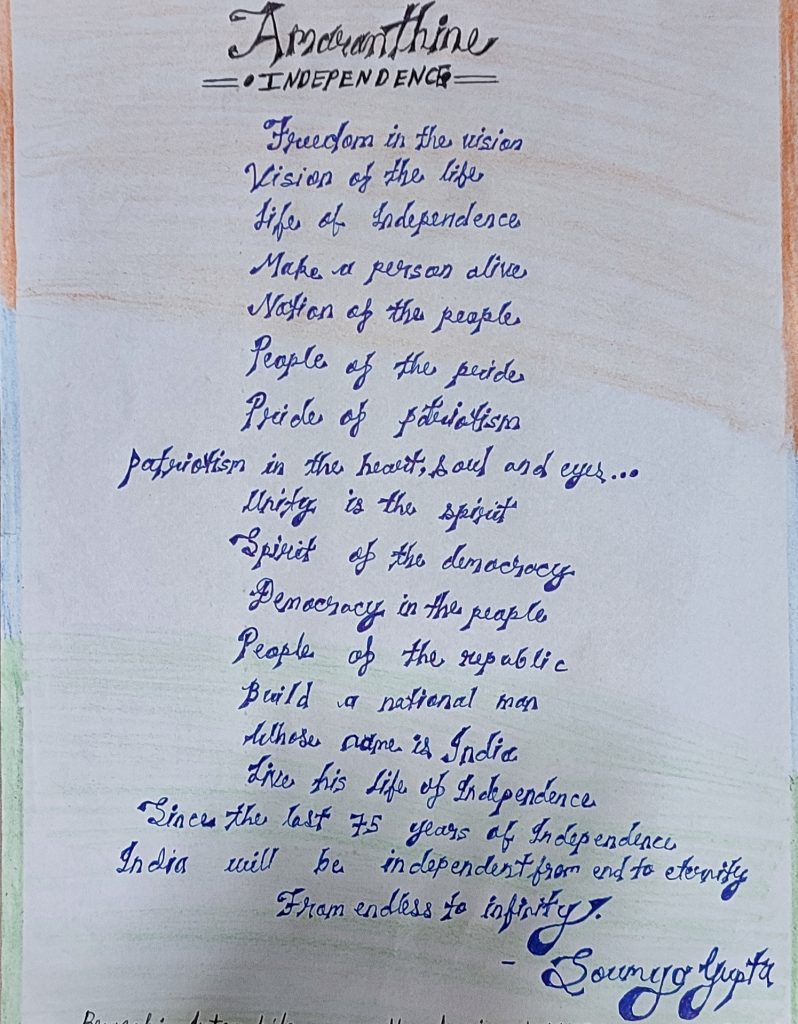 Amaranthine
INDEPENDENCE
Freedom in the vision
Vision of the life
Life of Independence
Make a person alive
Nation of the people
People of the pride
Pride of patriotism
Patriotism in the heart, soul and eyes...
Unity is the spirit
Spirit of the democracy
Democracy in the people
People of the republic
Build a national man
Whose name is India
Live his life of Independence
Since the last 75 years of Independence
India will be independent from end to eternity
From endless to infinity.
- Soumya Gupta